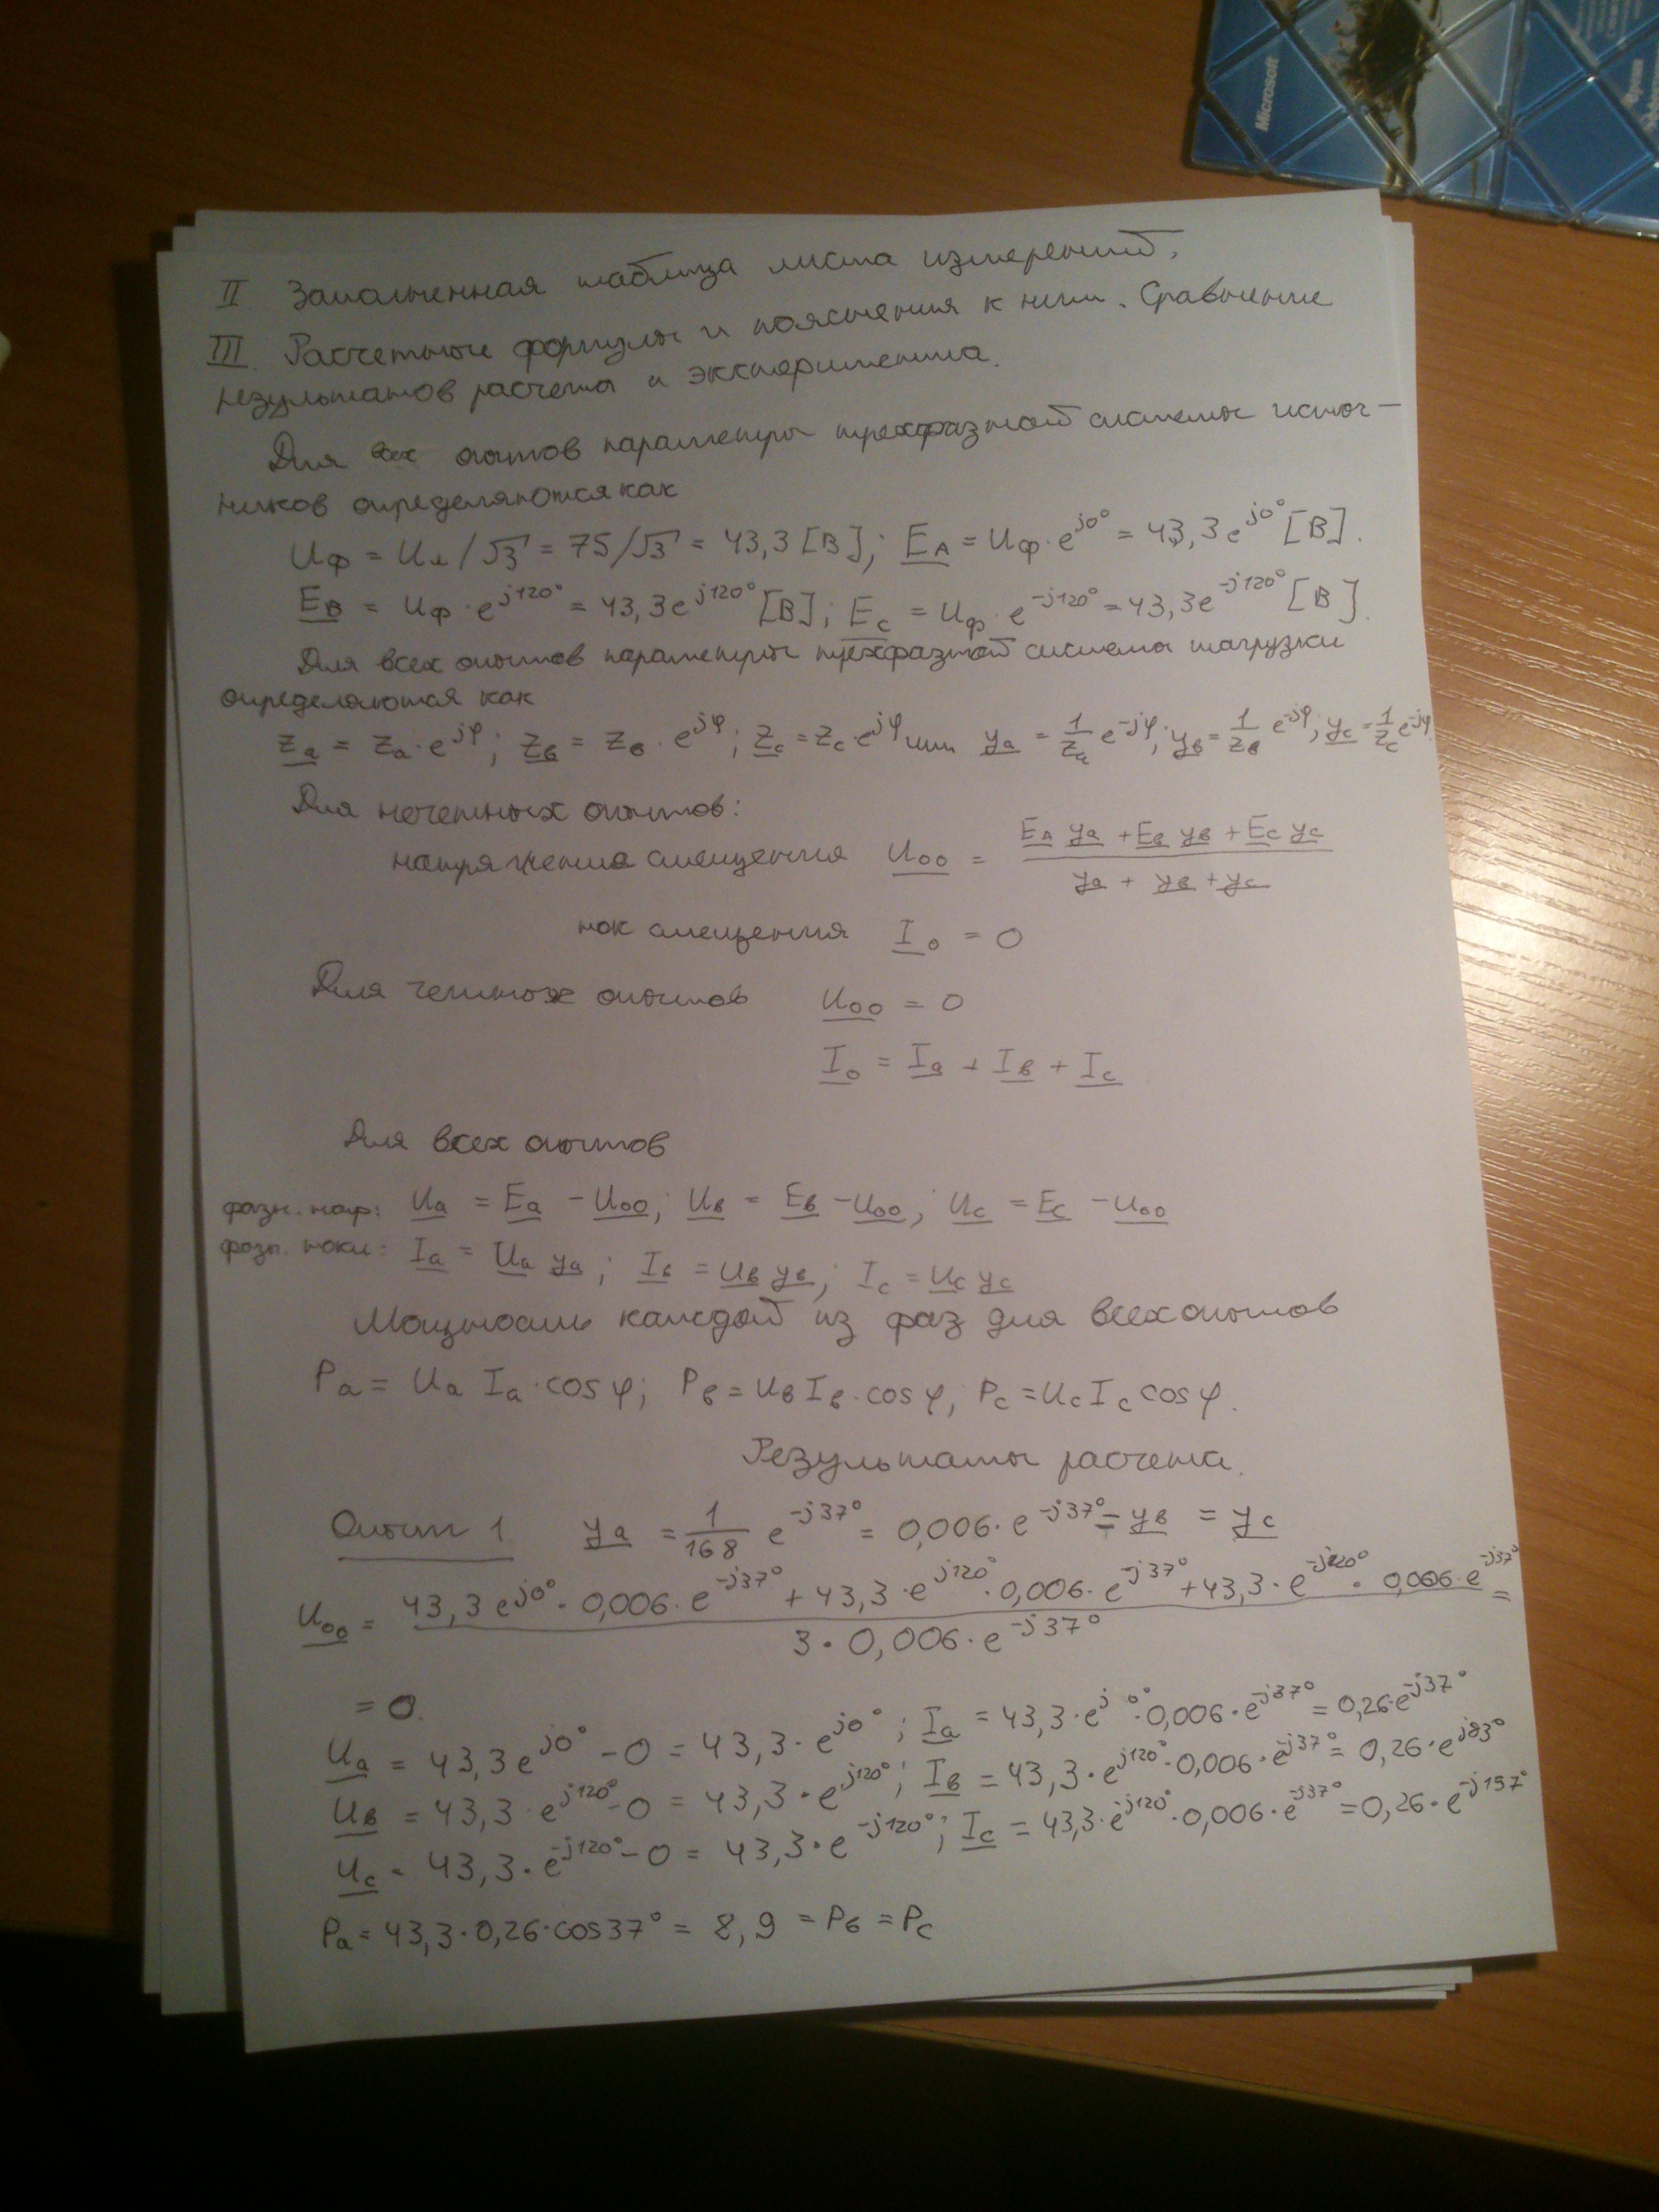 Microsoft
II Заполненная таблица листа измерений.
III. Расчетные формулы и пояснения к ним. Сравнение
результатов расчета и эксперимента.
Для всех опытов параметры трехфазной системы источ-
ников определяются как
Uф = Uл/√3 = 75/√3 = 43,3 [В]; E_A = Uф·e^{j0°} = 43,3e^{j0°} [В].
E_B = Uф·e^{j120°} = 43,3e^{j120°} [В]; E_C = Uф·e^{-j120°} = 43,3e^{-j120°} [В].
Для всех опытов параметры трехфазной системы нагрузки
определяются как
Z_a = Z_a·e^{jφ}; Z_в = Z_в·e^{jφ}; Z_c = Z_c·e^{jφ} или y_a = 1/Z_a e^{-jφ}; y_в = 1/Z_в e^{-jφ}; y_c = 1/Z_c e^{-jφ}.
Для нечетных опытов:
напряжения смещения U_00 = (E_A y_a + E_в y_в + E_c y_c) / (y_a + y_в + y_c)
ток смещения I_0 = 0
Для четных опытов U_00 = 0
I_0 = I_a + I_в + I_c
Для всех опытов
фазн. напр: U_a = E_a - U_00; U_в = E_в - U_00; U_c = E_c - U_00
фазн. токи: I_a = U_a y_a; I_в = U_в y_в; I_c = U_c y_c
Мощность каждой из фаз для всех опытов
P_a = U_a I_a·cosφ; P_в = U_в I_в·cosφ; P_c = U_c I_c cosφ.
Результаты расчета.
Опыт 1 y_a = 1/168 e^{-j37°} = 0,006·e^{-j37°} = y_в = y_c
U_00 = (43,3e^{j0°}·0,006·e^{-j37°} + 43,3·e^{j120°}·0,006·e^{-j37°} + 43,3·e^{-j120°}·0,006·e^{-j37°}) / (3·0,006·e^{-j37°}) =
= 0.
U_a = 43,3e^{j0°} - 0 = 43,3·e^{j0°}; I_a = 43,3·e^{j0°}·0,006·e^{-j37°} = 0,26·e^{-j37°}
U_в = 43,3·e^{j120°} - 0 = 43,3·e^{j120°}; I_в = 43,3·e^{j120°}·0,006·e^{-j37°} = 0,26·e^{j83°}
U_c = 43,3·e^{-j120°} - 0 = 43,3·e^{-j120°}; I_c = 43,3·e^{j120°}·0,006·e^{-j37°} = 0,26·e^{-j157°}
P_a = 43,3·0,26·cos37° = 8,9 = P_в = P_c